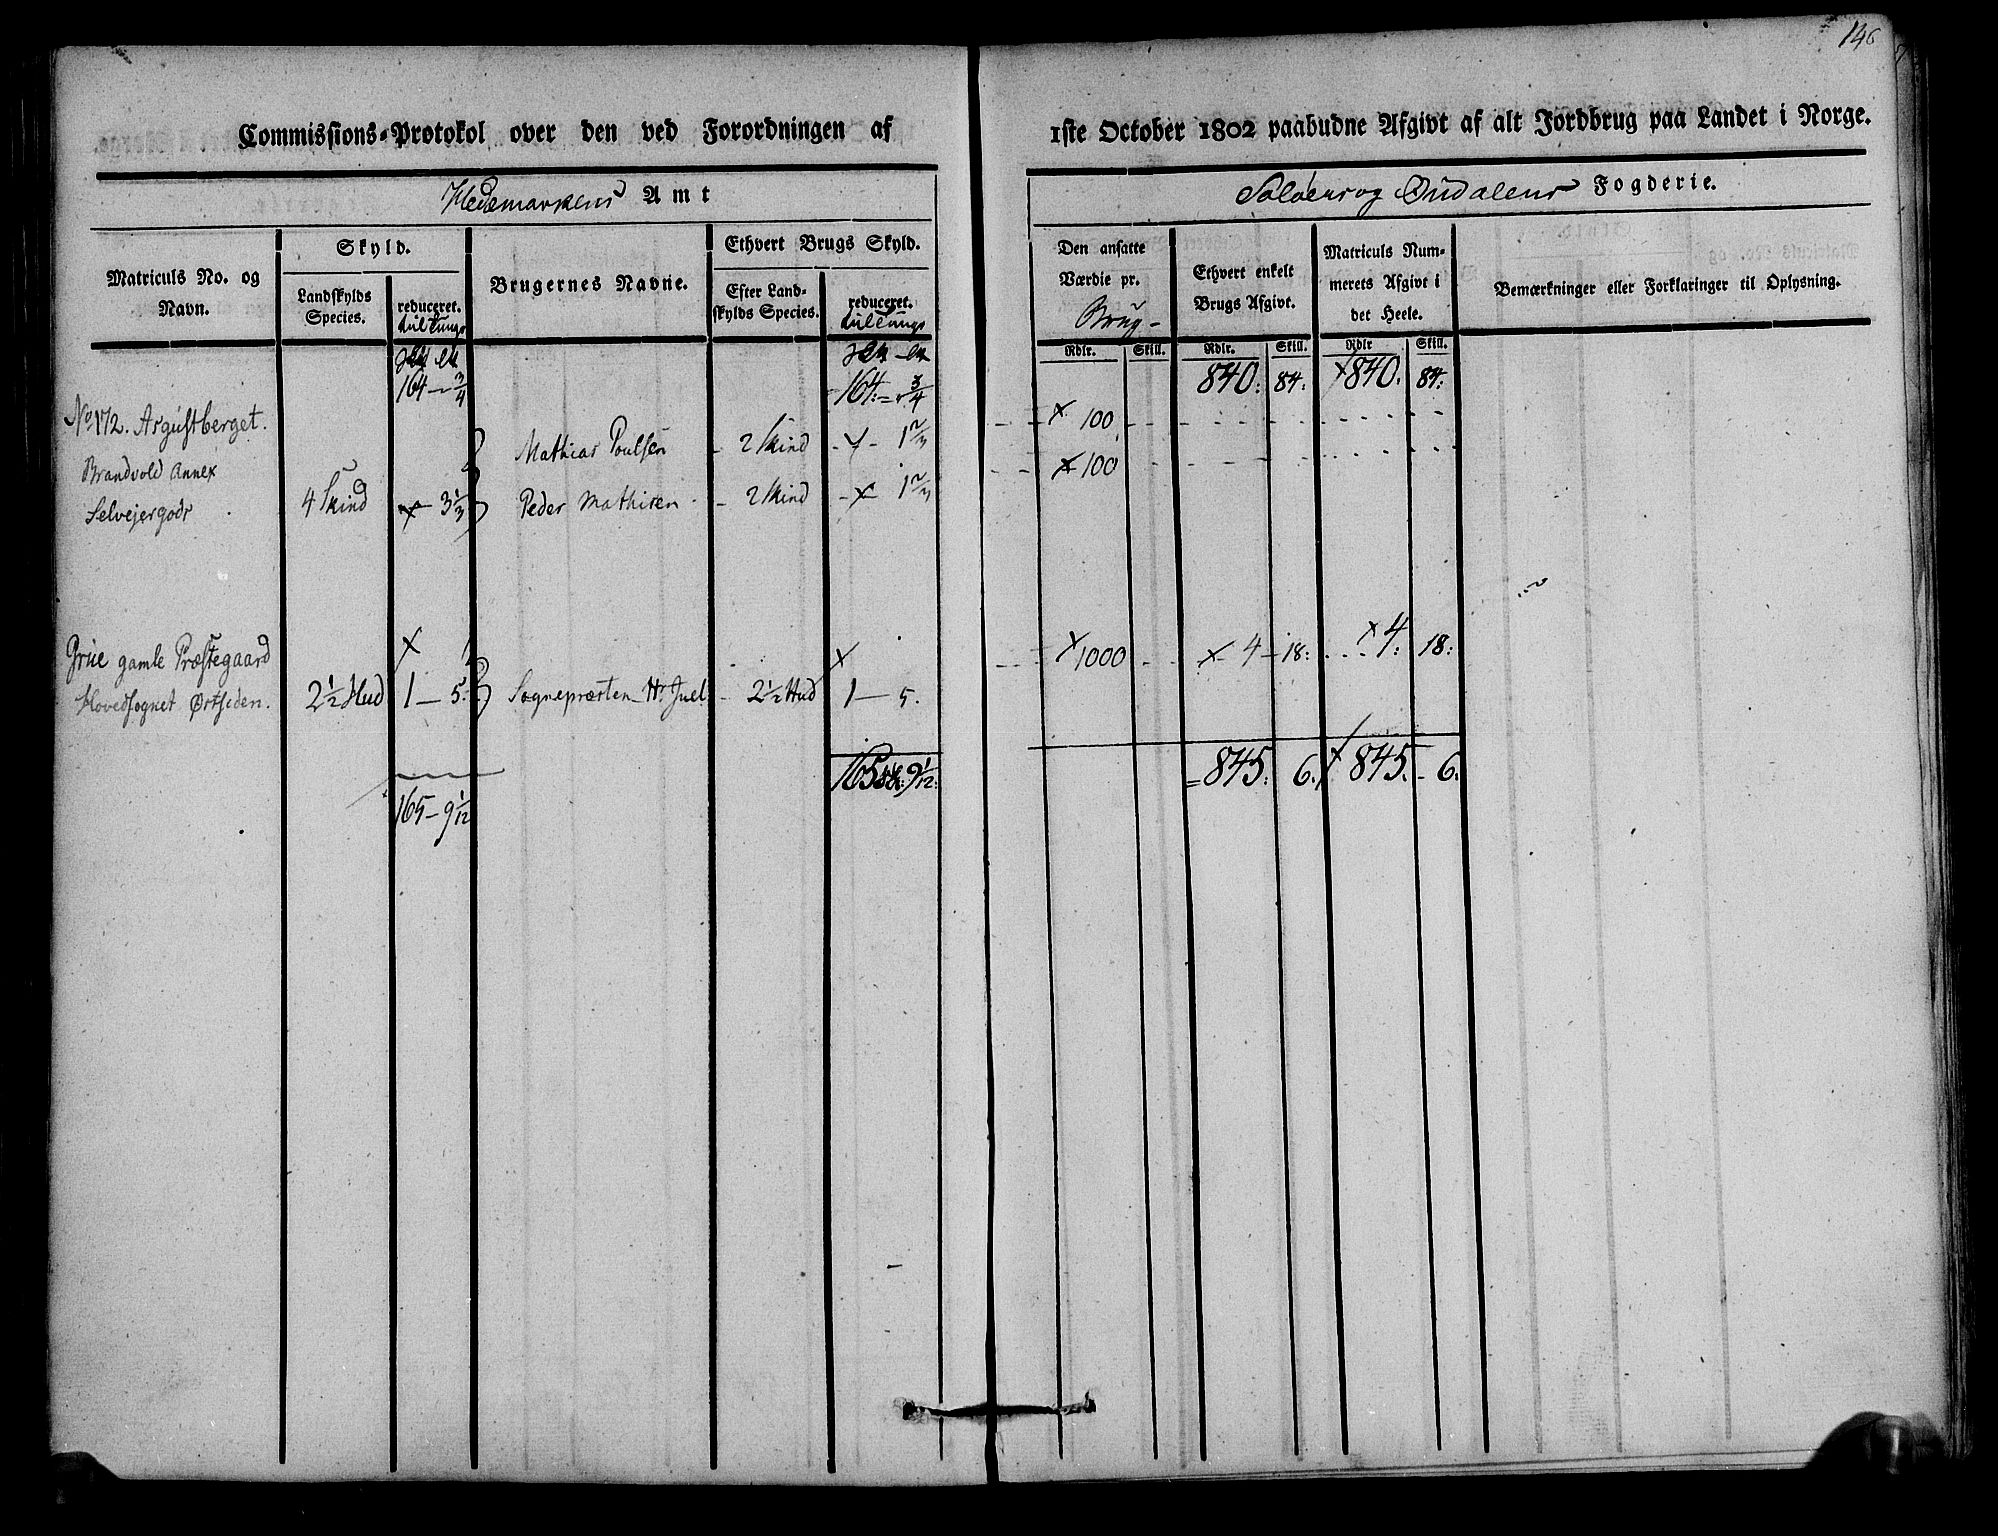 146
Commissions-Protokol over den ved Forordningen af
1ste October 1802 paabudne Afgivt af alt Jordbrug paa Landet i Norge.
Hedemarkens Amt
Soløer og Oudalens Fogderie.
Matriculs No. og Navn.
Skyld.
Landskylds Species.
reduceret.
Brugernes Navne.
Ethvert Brugs Skyld.
Efter Landskylds Species.
reduceret.
Den ansatte Værdie pr.
Brug-
Ethvert enkelt Brugs Afgivt.
Matriculs Nummerets Afgivt i det Heele.
Bemærkninger eller Forklaringer til Oplysning.
Rdlr. Skill. Rdlr. Skill. Rdlr Skill.
164 - 3/4 164: 3/4 840: 84: x 840: 84:
No 172. Asgustberget.
Mathias Poulsen - 2 Skind - x - 1 2/3 x 100
Brandvold Annex
Selvejergods 4 Skind x 3 1/3 Peder Mathisen - 2 Skind - x - 1 2/3 x 100
Grue gamle Præstegaard x x x 1000 x 4 - 18: x 4: 18:
Hovedsognet Østsiden. 2 1/2 Hud 1 - 5: Sognepræsten Hr Juel - 2 1/2 Hud 1 - 5.
165 9 1/12: = 845: 6. x 845. - 6.
165 - 9 1/12